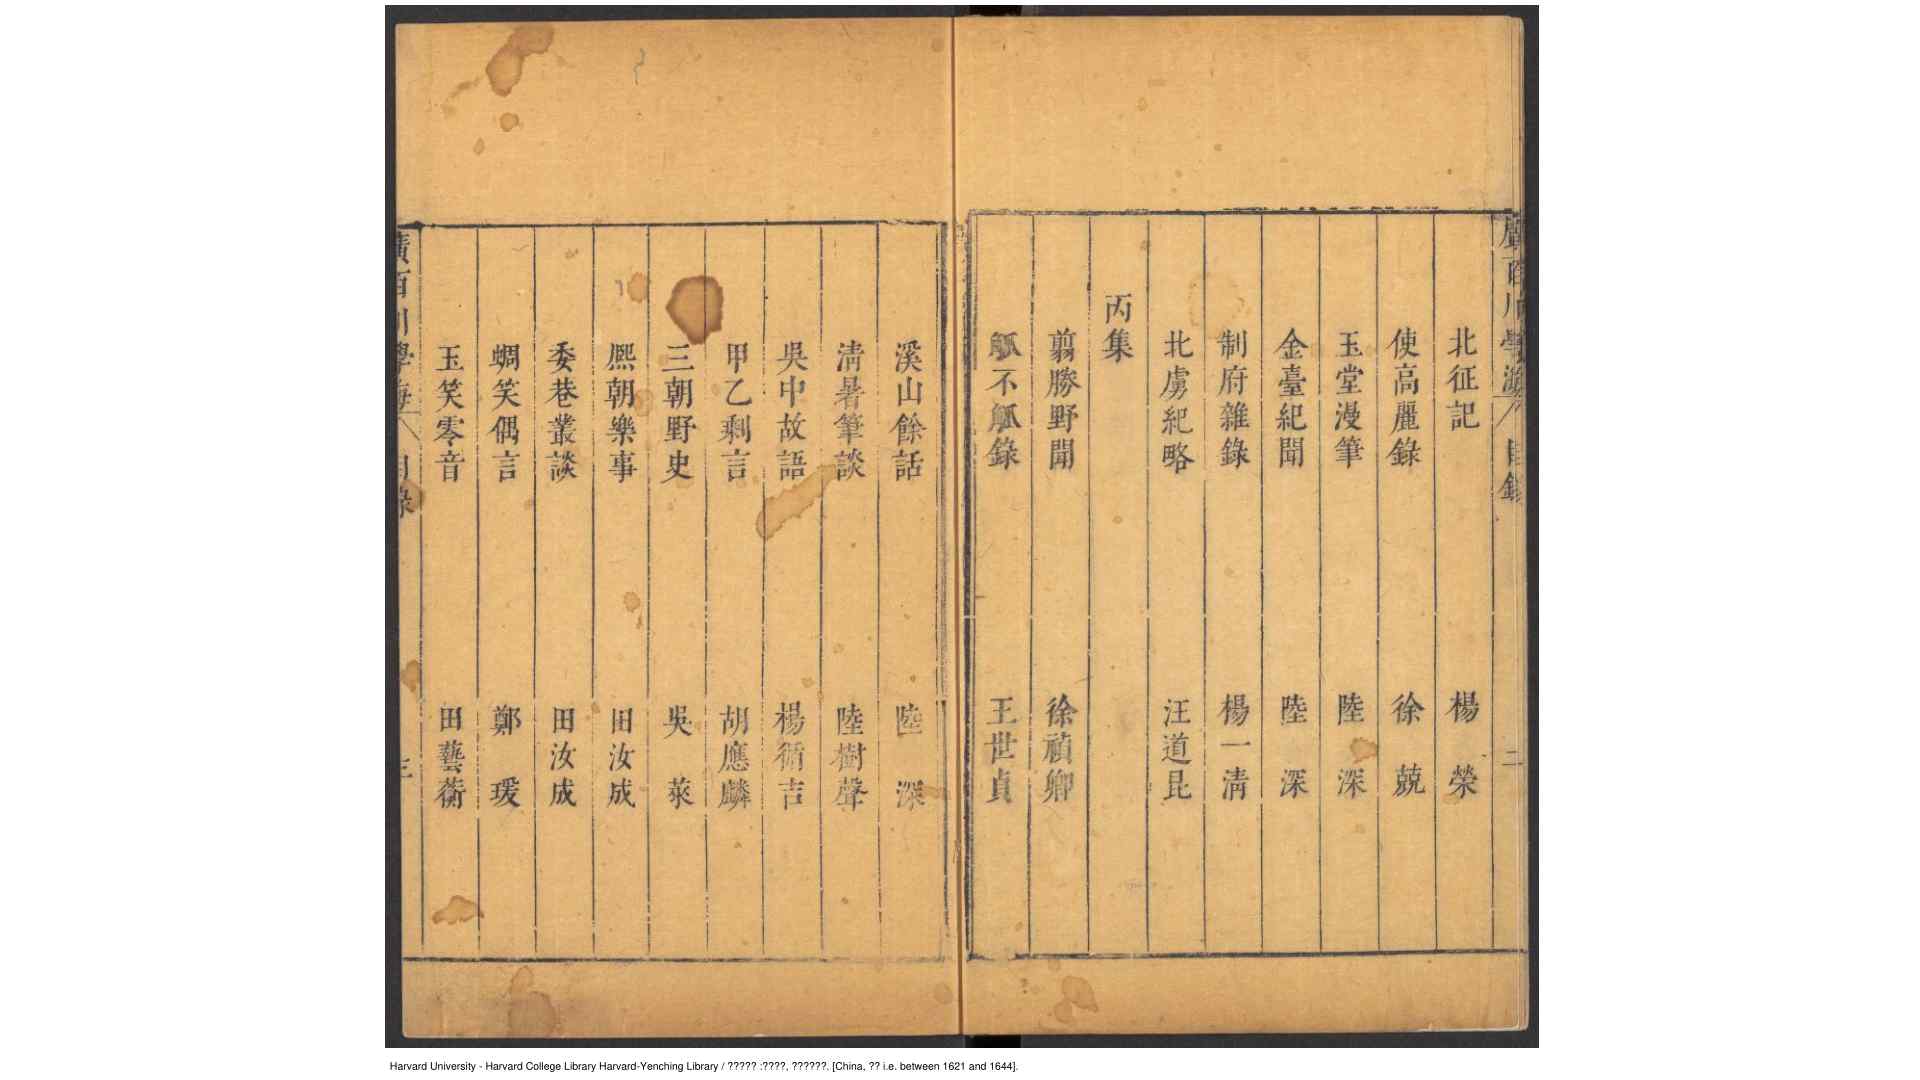 廣百川學海 目錄 二
北征記 楊榮
使高麗錄 徐兢
玉堂漫筆 陸深
金臺紀聞 陸深
制府雜錄 楊一清
北虜紀略 汪道昆
丙集
翦勝野聞 徐禎卿
觚不觚錄 王世貞
溪山餘話 陸深
清暑筆談 陸樹聲
吳中故語 楊循吉
甲乙剩言 胡應麟
三朝野史 吳萊
熈朝樂事 田汝成
委巷叢談 田汝成
蜩笑偶言 鄭瑗
玉笑零音 田藝蘅
廣百川學海 目錄 三
Harvard University - Harvard College Library Harvard-Yenching Library / ????? :????, ??????. [China, ?? i.e. between 1621 and 1644].